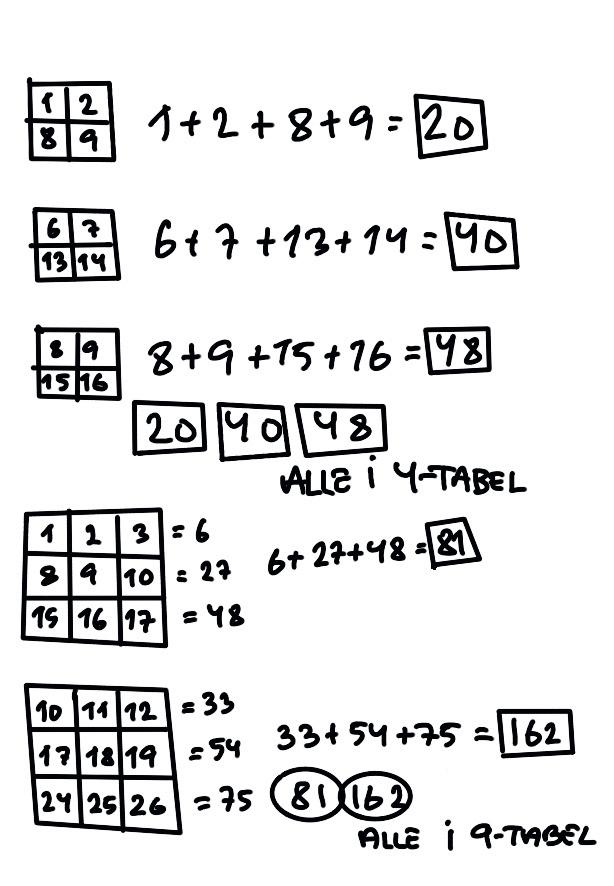 1 2
8 9
1+2+8+9= 20
6 7
13 14
6+7+13+14= 40
8 9
15 16
8+9+15+16= 48
20 40 48
ALLE i 4-TABEL
1 2 3 = 6
8 9 10 = 27
15 16 17 = 48
6+27+48= 81
10 11 12 = 33
17 18 19 = 54
24 25 26 = 75
33+54+75 = 162
81 162
ALLE i 9-TABEL